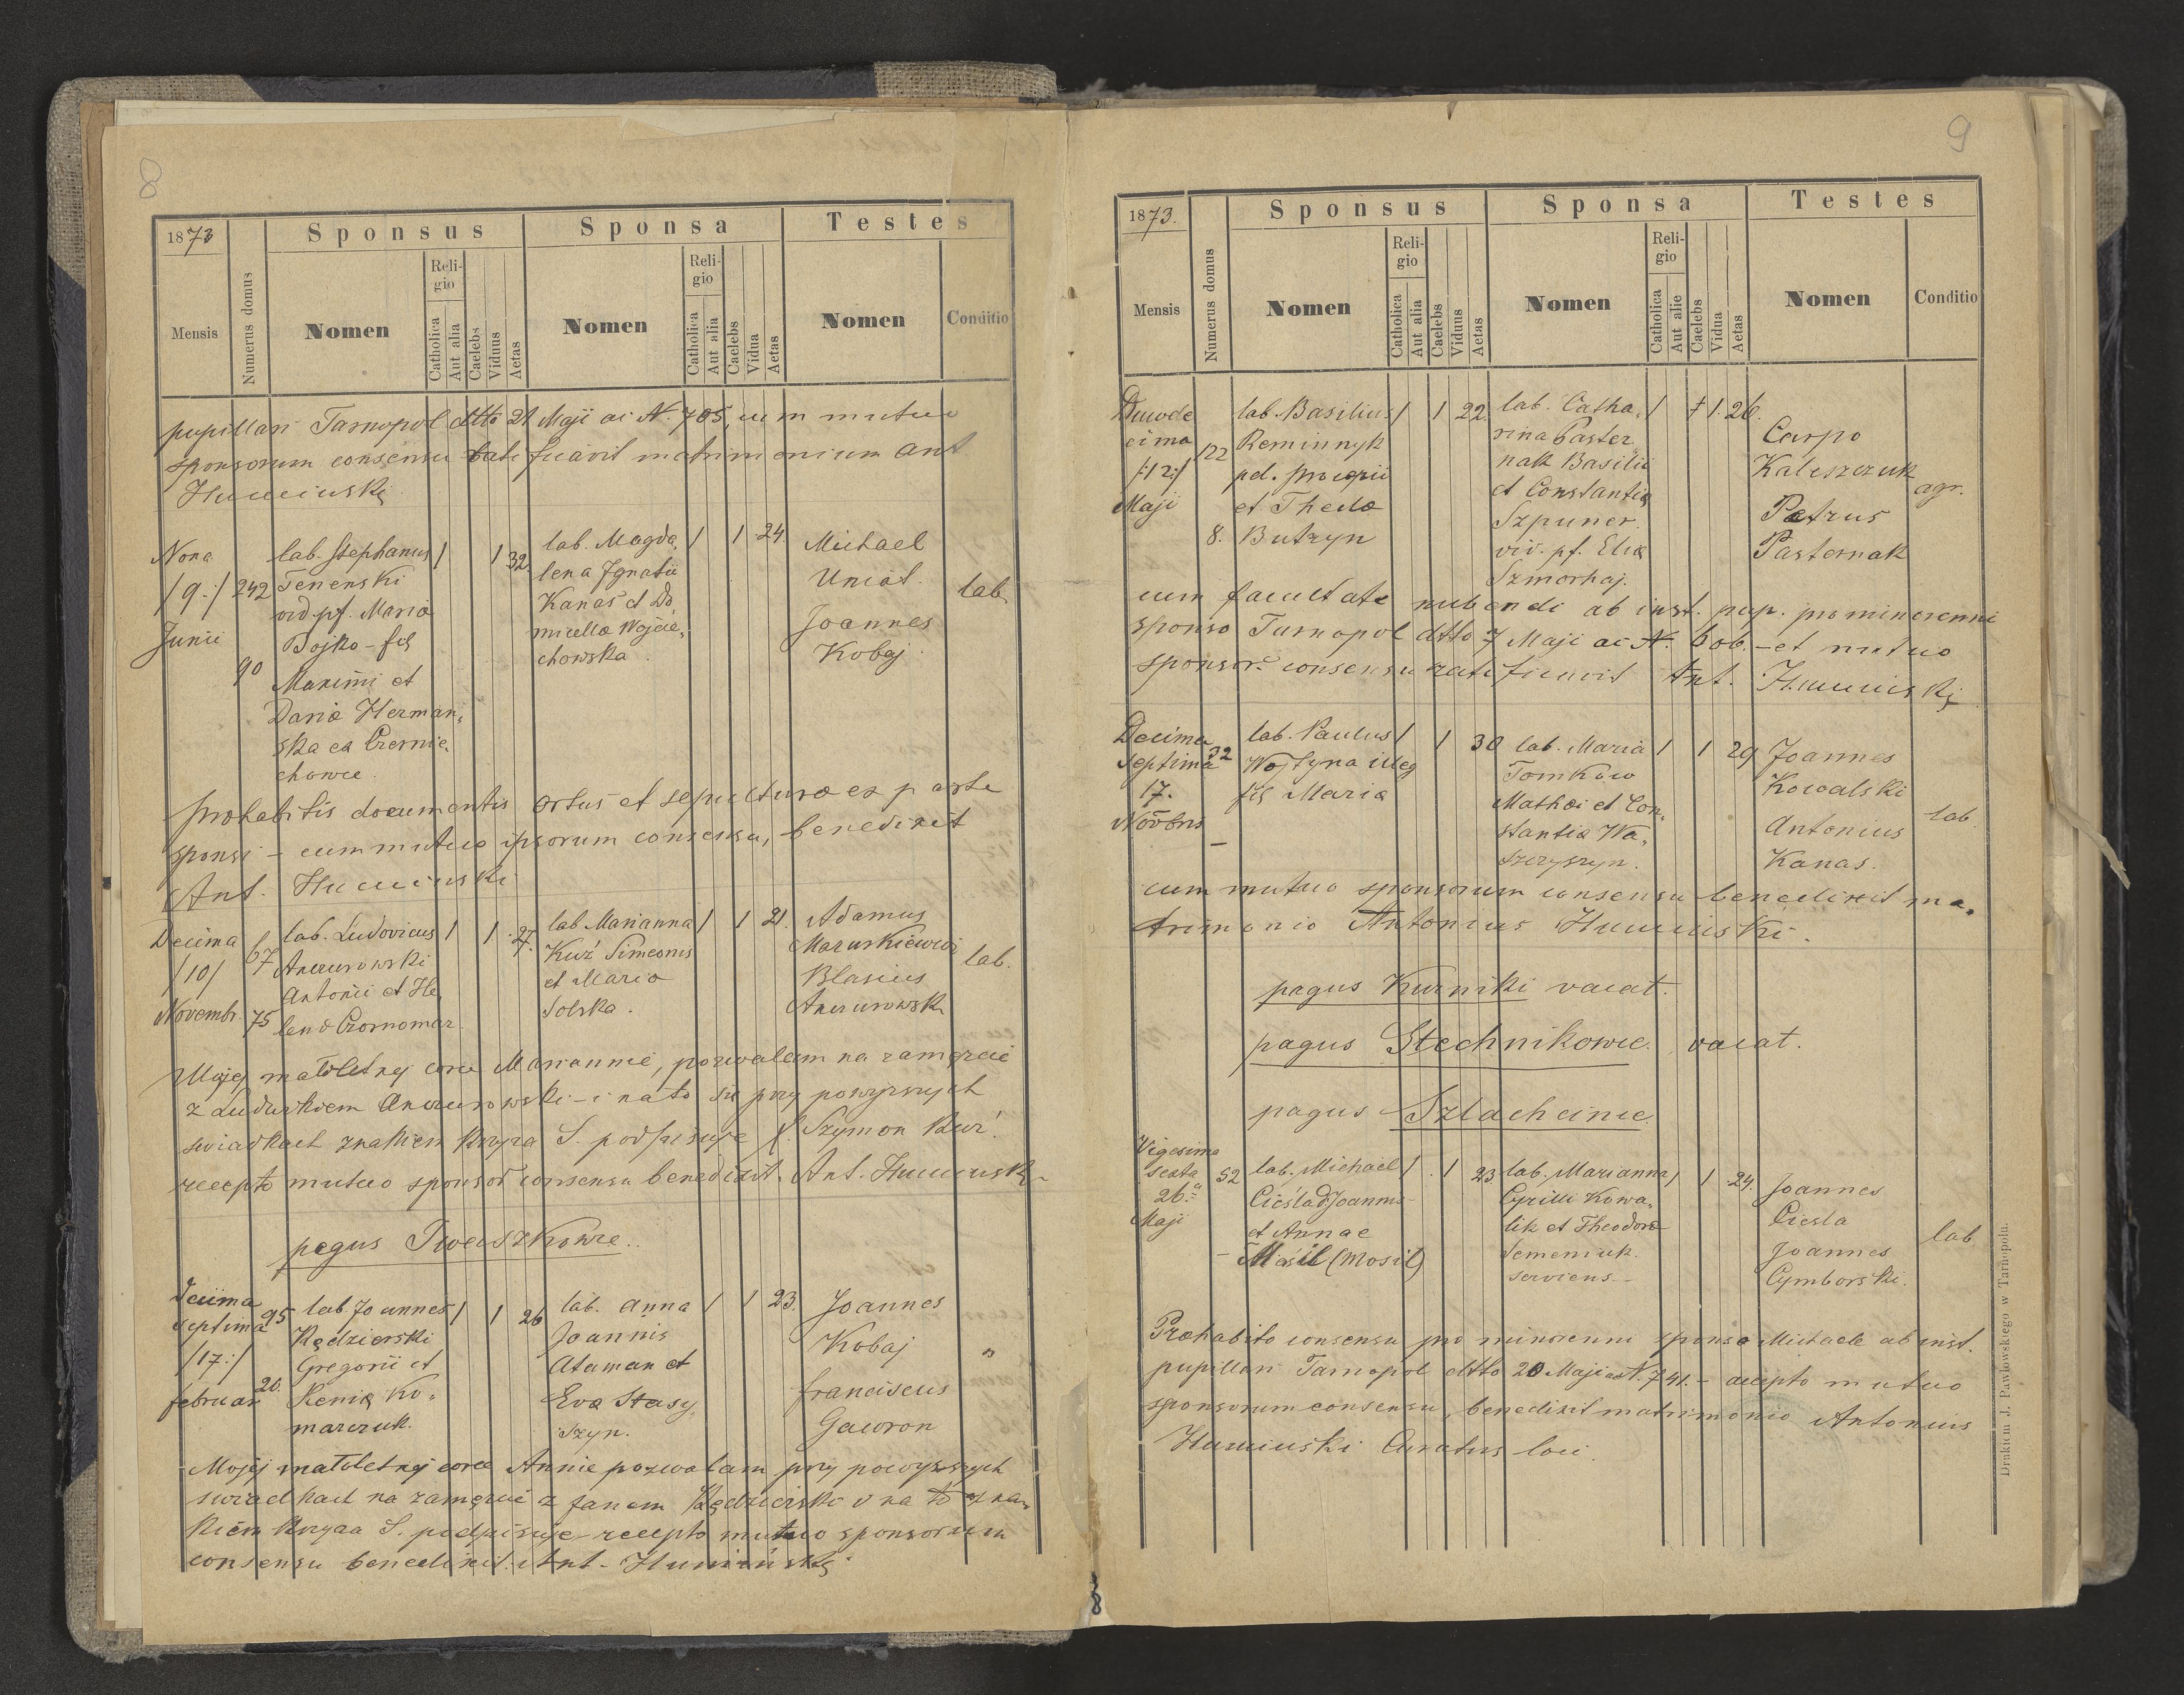 8
1873
Mensis
Numerus domus
Sponsus
Nomen
Religio
Catholica
Aut alia
Caelebs
Viduus
Aetas
Sponsa
Nomen
Religio
Catholica
Aut alia
Caelebs
Vidua
Aetas
Testes
Nomen
Conditio
pupillari Tarnopol dtto 21 Maji ai N. 705, cum mutuo
sponsorum consensu ratificavit matrimonium Ant
Humiński
Nona
/9:/
Junii
242
90
lab. Stephanus
Tenenski
vid. pf. Maria
Bojko - fil
Maximi et
Daria Herman,
ska ex Czernie,
chowce.
1 1 32
lab. Magda,
lena Ignatii
Kanas et Do,
micella Wojcie,
chowska.
1 1 24.
Michael
Uniat.
Joannes
Kobaj
lab.
prohabitis documentis ortus et sepulturae ex parte
sponsi - cum mutuo ipsorum consensu, benedixit
Ant. Humiński
Decima
/10/
Novembr.
67
75
lab. Ludovicus
Anczurowski
Antonii et He,
lena Czornomaz
1 1 27.
lab. Marianna
Kuź Simeonis
et Maria
Solska.
1 1 21.
Adamus
Mazurkiewicz
Blasius
Anczurowski
lab.
Mojej małoletnej corce Mariannie, pozwalam na zamęzcie
z Ludwikiem Anczurowski - i na to się przy powyzszych
swiadkach znakiem krzyza S. podpisuje †. Szymon Kuź.
recepto mutuo sponsor consensu benedixit. Ant. Humiński
pagus Iwaszkowce.
Decima
septima
/17:/
februar
95
20.
lab. Joannes
Kędzierski
Gregorii et
Xenia Ko,
marczuk.
1 1 26
lab. Anna
Joannis
Ataman et
Eva Stasy,
szyn.
1 1 23.
Joannes
Kobaj
franciscus
Gawron
"
Mojej małoletnej corce Annie pozwalam przy powyzszych
swiadkach na zamęzcie z Janem Kędzierski i na to zna,
kiem krzyza S. podpisuje - recepto mutuo sponsorum
consensu benedixit. Ant. Humiński
9
1873.
Mensis
Numerus domus
Sponsus
Nomen
Religio
Catholica
Aut alia
Caelebs
Viduus
Aetas
Sponsa
Nomen
Religio
Catholica
Aut alie
Caelebs
Vidua
Aetas
Testes
Nomen
Conditio
Duode
cima
/:12:/
Maji
122
8.
lab. Basilius
Reminnyk
pd. Procopii
et Thecla
Butryn
1 1 22
lab. Catha,
rina Paster
nak Basilii
et Constantia
Szpuner.
vid. pf. Elia
Szmorhaj.
1 1. 26.
Carpo
Kaleszczuk
Petrus
Pasternak
agr.
cum facultate nubendi ab inst. pup. pro minorenni
sponso Tarnopol dtto 7 Maji ai N. 606. - et mutuo
sponsor consensu ratificavit Ant. Humiński
Decima
septima
17.
Novbris
32
lab. Paulus
Wojtyna illeg
fil Maria
1 1 30
lab. Maria
Tomków
Mathei et Con,
stantia Wa,
szczyszyn.
1 1 29
Joannes
Kowalski
Antonius
Kanas.
lab.
cum mutuo sponsorum consensu benedixit ma,
trimonio Antonius Humiński.
pagus Kurniki vacat.
pagus Stechnikowce. vacat.
pagus Szlachcince
Vigesima
sexta
26.
Maji
52
lab. Michael
Cieśla Joannis
et Annae
Masil (Mosil)
1 1 23
lab. Marianna
Cyrilli Kowa,
lik et Theodora
Semeniuk.
serviens -
1 1 24.
Joannes
Ciesla
Joannes
Cymborski.
lab
Prohabito consensu pro minorenni sponso Michaele ab inst.
pupillari Tarnopol dtto 20 Maji ai N. 741. - accepto mutuo
sponsorum consensu, benedixit matrimonio Antonius
Humiński Curatus loci.
Drukiem J. Pawłowskiego w Tarnopolu.
8